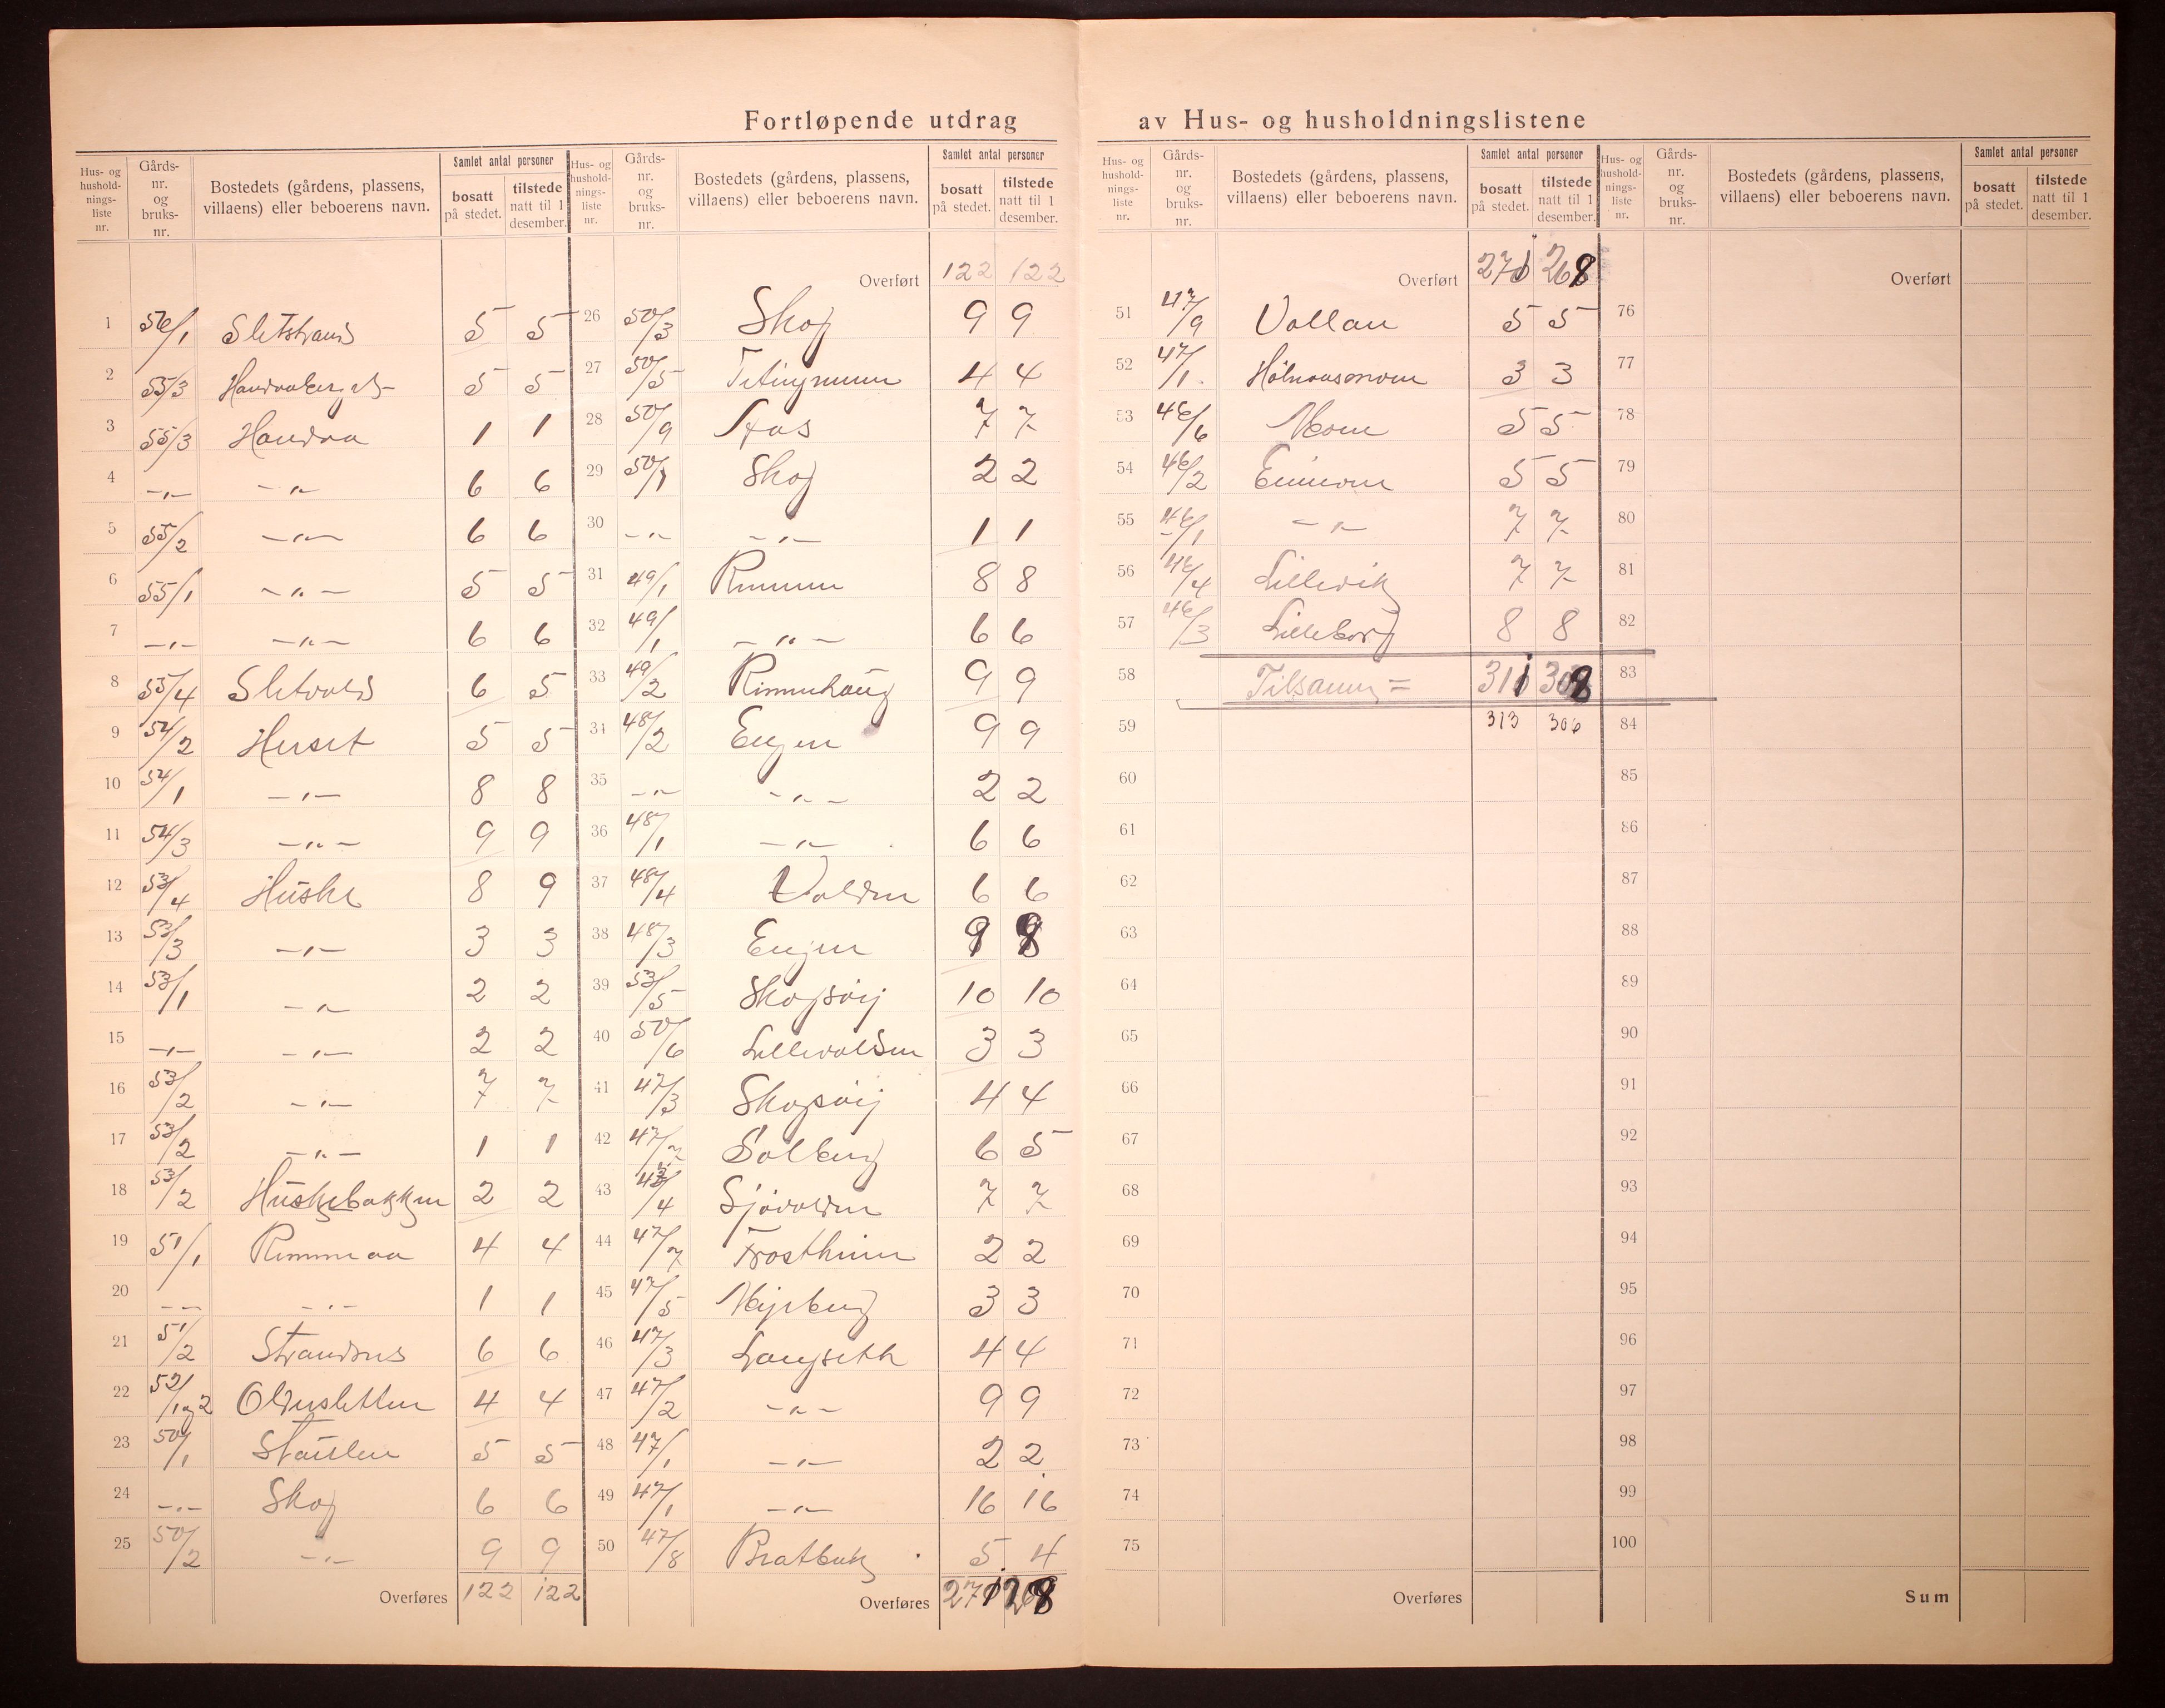 Fortløpende utdrag av Hus- og husholdningslistene
Hus- og hushold-nings-liste nr. Gårds-nr. og bruks-nr. Bostedets (gårdens, plassens, villaens) eller beboerens navn. Samlet antal personer bosatt på stedet. tilstede natt til 1 desember.
1 56/1 Sletstrand 5 5
2 55/3 5 5
3 55/3 Handraa 1 1
4 -"- -"- 6 6
5 55/2 -"- 6 6
6 55/1 -"- 5 5
7 -"- -"- 6 6
8 55/4 Sletvold 6 5
9 54/2 Herset 5 5
10 54/1 -"- 8 8
11 54/3 -"- 9 9
12 53/4 Huske 8 9
13 53/3 -"- 3 3
14 53/1 -"- 2 2
15 -"- -"- 2 2
16 53/2 -"- 7 7
17 53/2 -"- 1 1
18 53/2 Huskebakken 2 2
19 51/1 Rimmraa 4 4
20 -"- -"- 1 1
21 51/2 6 6
22 52/1 og 2 Oldensletten 4 4
23 50/1 Stavlen 5 5
24 -"- Skog 6 6
25 50/2 -"- 9 9
Overføres 122 122
Hus- og hushold-nings-liste nr. Gårds-nr. og bruks-nr. Bostedets (gårdens, plassens, villaens) eller beboerens navn. Samlet antal personer bosatt på stedet. tilstede natt til 1 desember.
Overført 122 122
26 50/3 Skog 9 9
27 50/5 4 4
28 50/9 7 7
29 50/1 Skog 2 2
30 -"- -"- 1 1
31 49/1 Rimmen 8 8
32 49/1 -"- 6 6
33 49/2 Rimmenhaug 9 9
34 48/2 Engen 9 9
35 -"- -"- 2 2
36 48/1 -"- 6 6
37 48/4 Volden 6 6
38 48/3 Engen 9 8
39 53/5 Skogsöy 10 10
40 50/6 Lillevolden 3 3
41 47/3 Skogsöy 4 4
42 Solberg 6 5
43 Sjövolden 7 7
44 47/7 Frostheim 2 2
45 47/5 3 3
46 47/3 Langseth 4 4
47 47/2 -"- 9 9
48 47/1 -"- 2 2
49 47/1 -"- 16 16
50 47/8 5 4
Overføres 271 268
Hus- og hushold-nings-liste nr. Gårds-nr. og bruks-nr. Bostedets (gårdens, plassens, villaens) eller beboerens navn. Samlet antal personer bosatt på stedet. tilstede natt til 1 desember.
Overført 271 268
51 47/9 Vollan 5 5
52 47/1 3 3
53 46/6 5 5
54 46/2 5 5
55 46/1 -"- 7 7
56 46/4 Lillevik 7 7
57 46/3 Lilleborg 8 8
58 Tilsamm = 311 308
59 313 306
60
61
62
63
64
65
66
67
68
69
70
71
72
73
74
75
Overføres
Hus- og hushold-nings-liste nr. Gårds-nr. og bruks-nr. Bostedets (gårdens, plassens, villaens) eller beboerens navn. Samlet antal personer bosatt på stedet. tilstede natt til 1 desember.
Overført
76
77
78
79
80
81
82
83
84
85
86
87
88
89
90
91
92
93
94
95
96
97
98
99
100
Sum